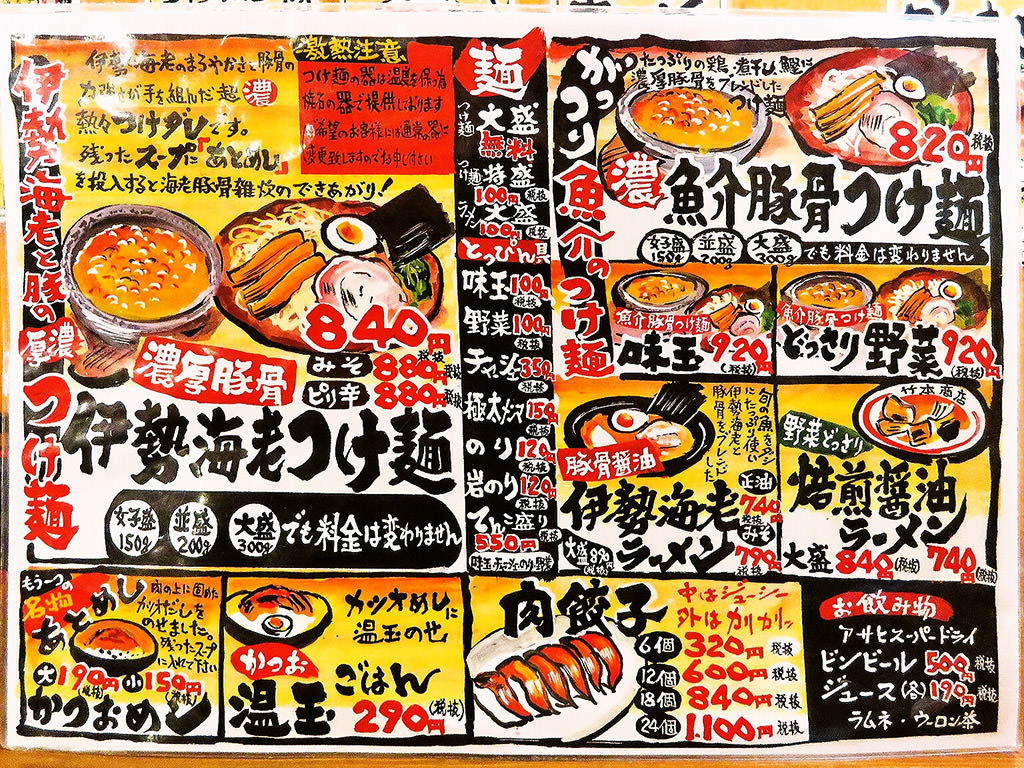 伊勢海老と豚の濃厚つけ麺
伊勢海老のまろやかさと豚骨の
力強さが手を組んだ超濃
熱々つけダレです。
残ったスープに「あとめし」
を投入すると海老豚骨雑炊のできあがり!
激熱注意
つけ麺の器は温度を保つ為
焼石の器で提供しております
ご希望のお客様には通常の器に
変更致しますのでお申し付け下さい
840円
税抜
濃厚豚骨
みそ 880円 税抜
ピリ辛 880円 税抜
伊勢海老つけ麺
女子盛 150g
並盛 200g
大盛 300g
でも料金は変わりません
麺
つけ麺 大盛 無料
つけ麺 特盛
100円 税抜
ラーメン 大盛
100円 税抜
とっぴん具
味玉 100円 税抜
野菜 100円 税抜
チャーシュー 350円 税抜
極太メンマ 150円 税抜
のり 120円 税抜
岩のり 120円 税抜
てんこ盛り
550円 税抜
味玉・チャーシュー・のり・野菜
がっつり魚介のつけ麺
たっぷりの鶏、煮干し、鰹に
濃厚豚骨をブレンドした
つけ麺
820円 税抜
濃
魚介豚骨つけ麺
女子盛 150g
並盛 200g
大盛 300g
でも料金は変わりません
魚介豚骨つけ麺
味玉 920円 (税抜)
魚介豚骨つけ麺
どっさり野菜 920円 (税抜)
豚骨醤油
旬の魚をタップリ
にたっぷり使い
伊勢海老と
豚骨をブレンドしました。
伊勢海老ラーメン
正油
740円
税抜
みそ
790円
税抜
大盛
竹本商店
野菜どっさり
焙煎醤油
ラーメン
大盛 840円 (税抜) 740円 (税抜)
もう一つの
名物
あとめし
肉の上に固めた
カツオだしを
のせました。
残ったスープ
に入れて下さい
大 190円 (税抜) 小 150円 (税抜)
かつおめし
カツオめしに
温玉のせ
かつお
温玉ごはん
290円 (税抜)
肉餃子
中はジューシー
外はカリカリッ
6個 320円 税抜
12個 600円 税抜
18個 840円 税抜
24個 1.100円 税抜
お飲み物
アサヒスーパードライ
ビンビール 500円 税抜
ジュース(各) 190円 税抜
ラムネ・ウーロン茶